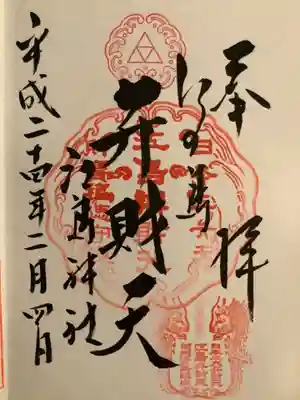 奉拝
江の島
弁財天
江島神社
平成二十四年二月四日